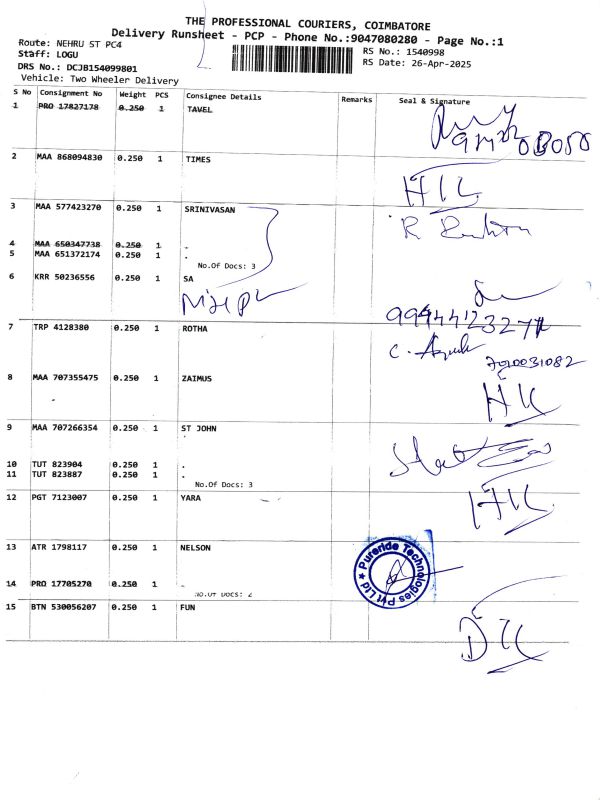 THE PROFESSIONAL COURIERS, COIMBATORE
Delivery Runsheet - PCP - Phone No.:9047080280 - Page No.:1
Route: NEHRU ST PC4
RS No.: 1540998
Staff: LOGU
RS Date: 26-Apr-2025
DRS No.: DCJB154099801
Vehicle: Two Wheeler Delivery
S No Consignment No Weight PCS Consignee Details Remarks Seal & Signature
1 PRO 17827178 0.250 1 TAVEL
2 MAA 868094830 0.250 1 TIMES
3 MAA 577423270 0.250 1 SRINIVASAN
4 MAA 650347738 0.250 1 .
5 MAA 651372174 0.250 1 .
No.Of Docs: 3
6 KRR 50236556 0.250 1 SA
7 TRP 4128380 0.250 1 ROTHA
7010031082
8 MAA 707355475 0.250 1 ZAIMUS
9 MAA 707266354 0.250 1 ST JOHN
10 TUT 823904 0.250 1 .
11 TUT 823887 0.250 1 .
No.Of Docs: 3
12 PGT 7123007 0.250 1 YARA
13 ATR 1798117 0.250 1 NELSON
Pureride Technologies Pvt Ltd
14 PRO 17705270 0.250 1 .
No.Of Docs: 2
15 BTN 530056207 0.250 1 FUN